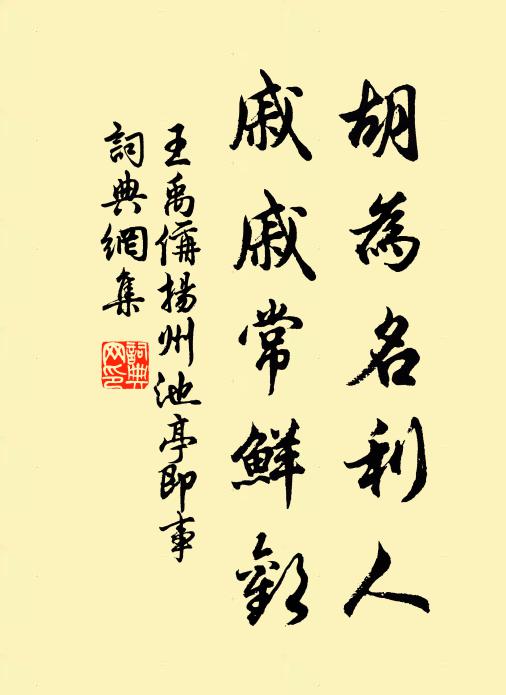 胡為名利人
戚戚常鮮歡
王禹偁揚州池亭即事
詞典網集
詞典网印